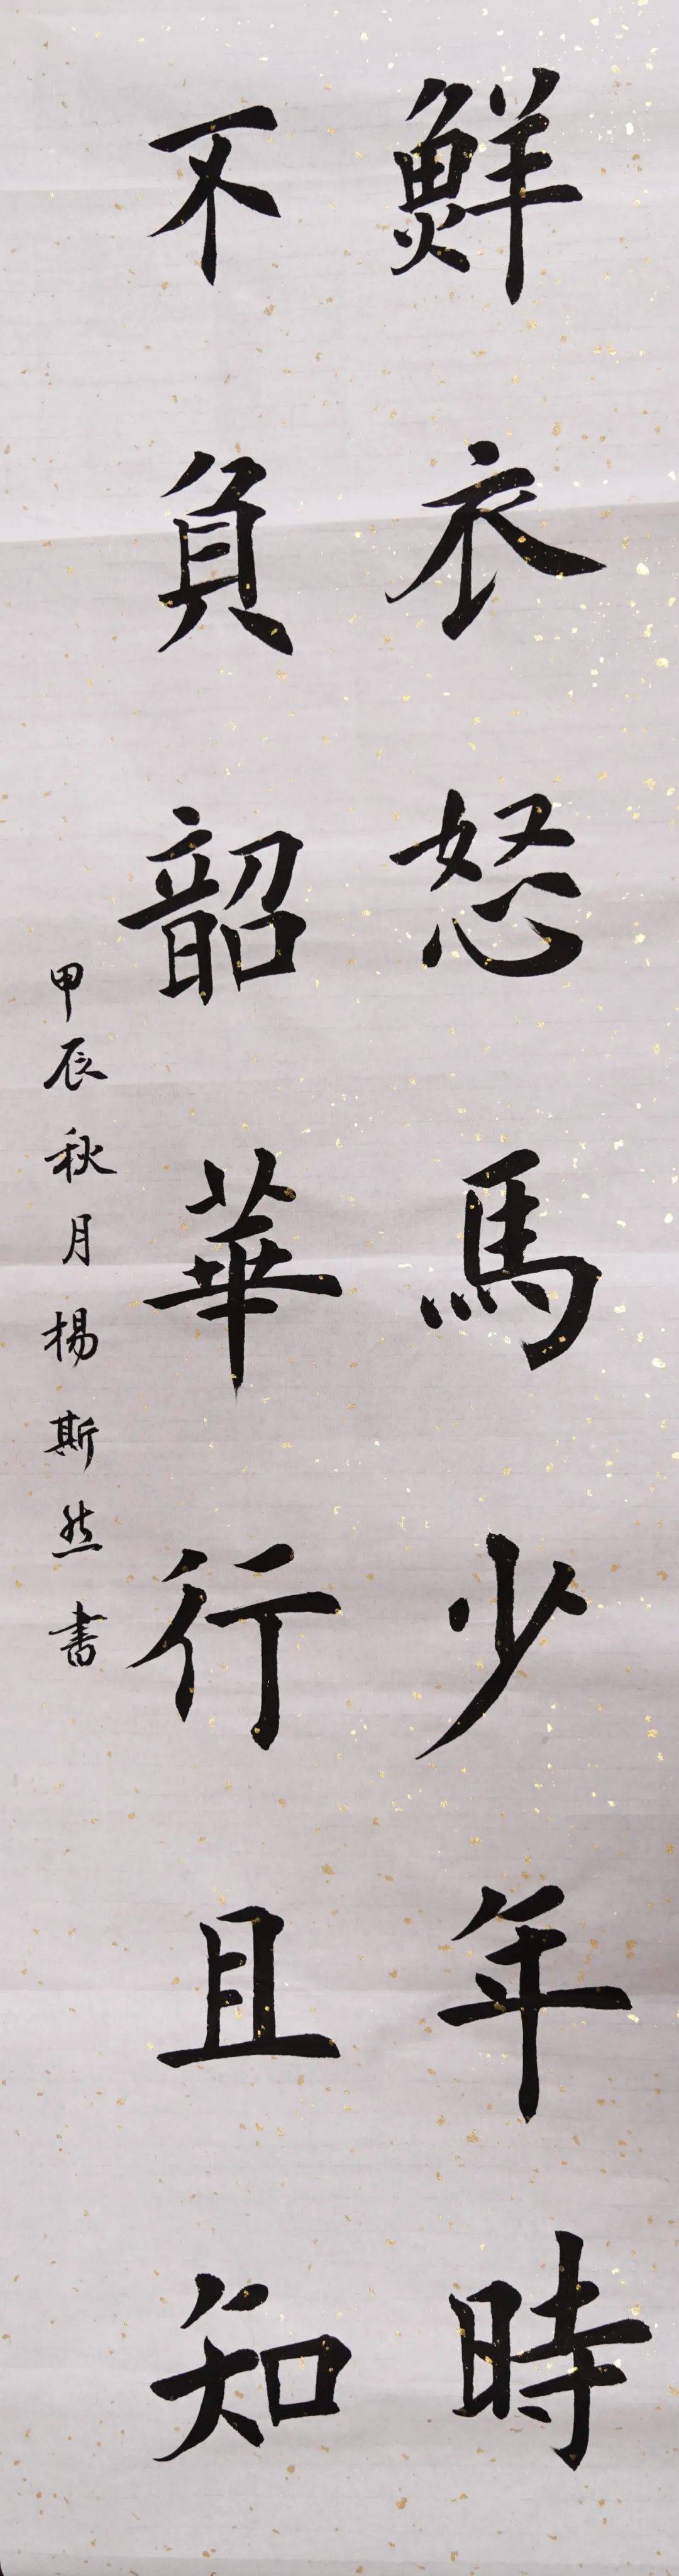 鮮衣怒馬少年時
不負韶華行且知
甲辰秋月楊斯然書